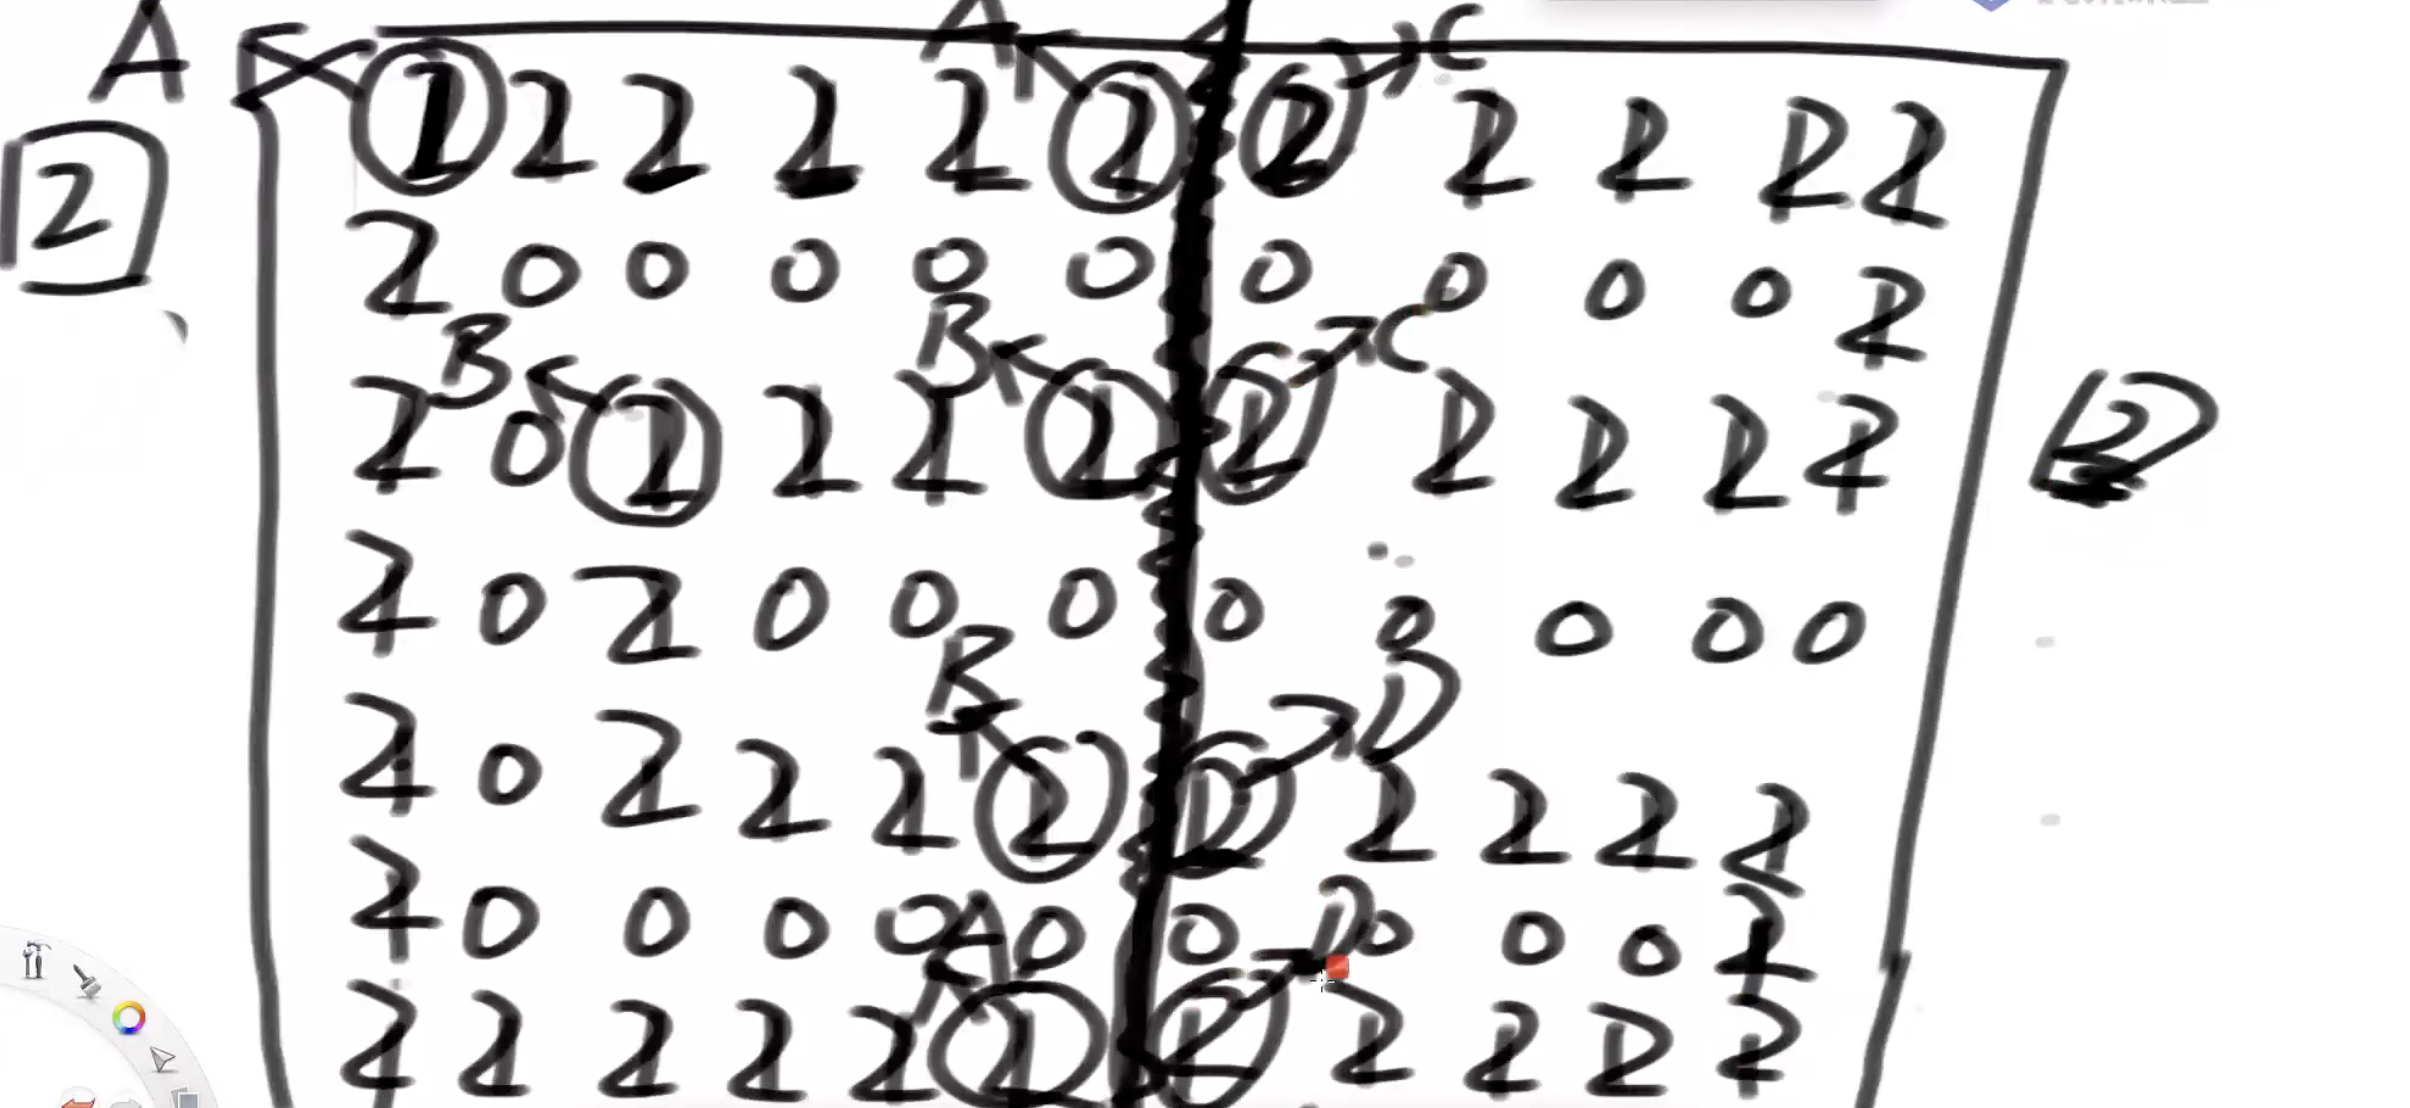 A A C
1 2 2 2 2 2 2 2 2 2 2
2
2 0 0 0 0 0 0 0 0 0 2
B B C
2 0 2 2 2 2 2 2 2 2 2
2
2 0 2 0 0 0 0 0 0 0 0
B D
2 0 2 2 2 2 2 2 2 2 2
A D
2 0 0 0 0 0 0 0 0 0 2
2 2 2 2 2 2 2 2 2 2 2